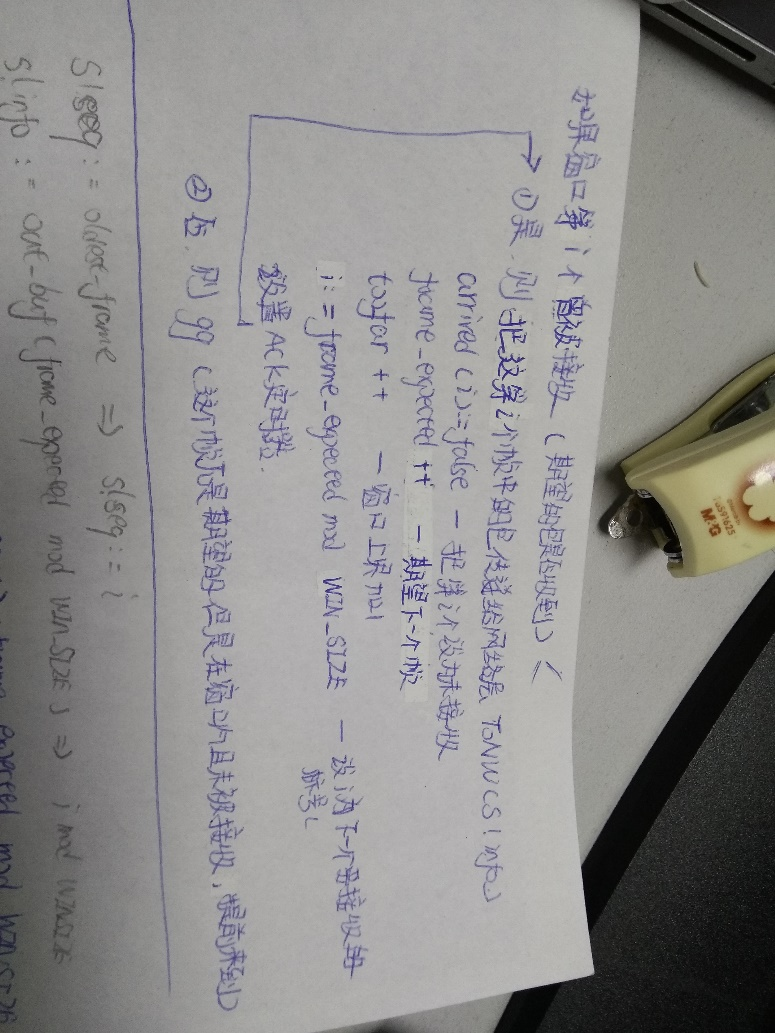 如果窗口第 i 个曾被接收 (期望的包是否收到) <
① 是. 则把这第 i 个帧中的包传递给网络层 TONW(S!info)
arrived (i):=false — 把第 i 个设为未接收
frame-expected ++ — 期望下一个帧
toofar ++ — 窗口上界加1
i:=frame-expected mod WIN-SIZE — 设为下一个要接收的
标号i
设置ACK定时器.
② 否. 则 gg (这个帧不是期望的但是在窗口内且未被接收, 提前来到)
S!seq := oldest-frame => s!seq:= i
S!info := out-buf (frame-expected mod WIN_SIZE) => i mod WINSIZE
frame expected mod WIN_SIZE
M&G